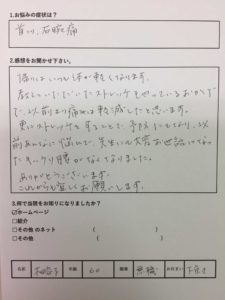 1.お悩みの症状は？
首こり、右腕痛
2.感想をお聞かせ下さい。
帰りはいつも体が軽くなります。
教えていただいたストレッチをやっているおかげ
で、以前より痛みは軽減したと思います。
更にストレッチをすることで予防にもなり、以
前あんなに悩んで、先生にも大変お世話になっ
たぎっくり腰がなくなりました。
ありがとうございます。
これからも宜しくお願いします。
3.何で当院をお知りになりましたか？
☑ホームページ
□紹介
□その他のネット（　　　）
□その他（　　　）
氏名 年齢 60 職業 無職 お住まい